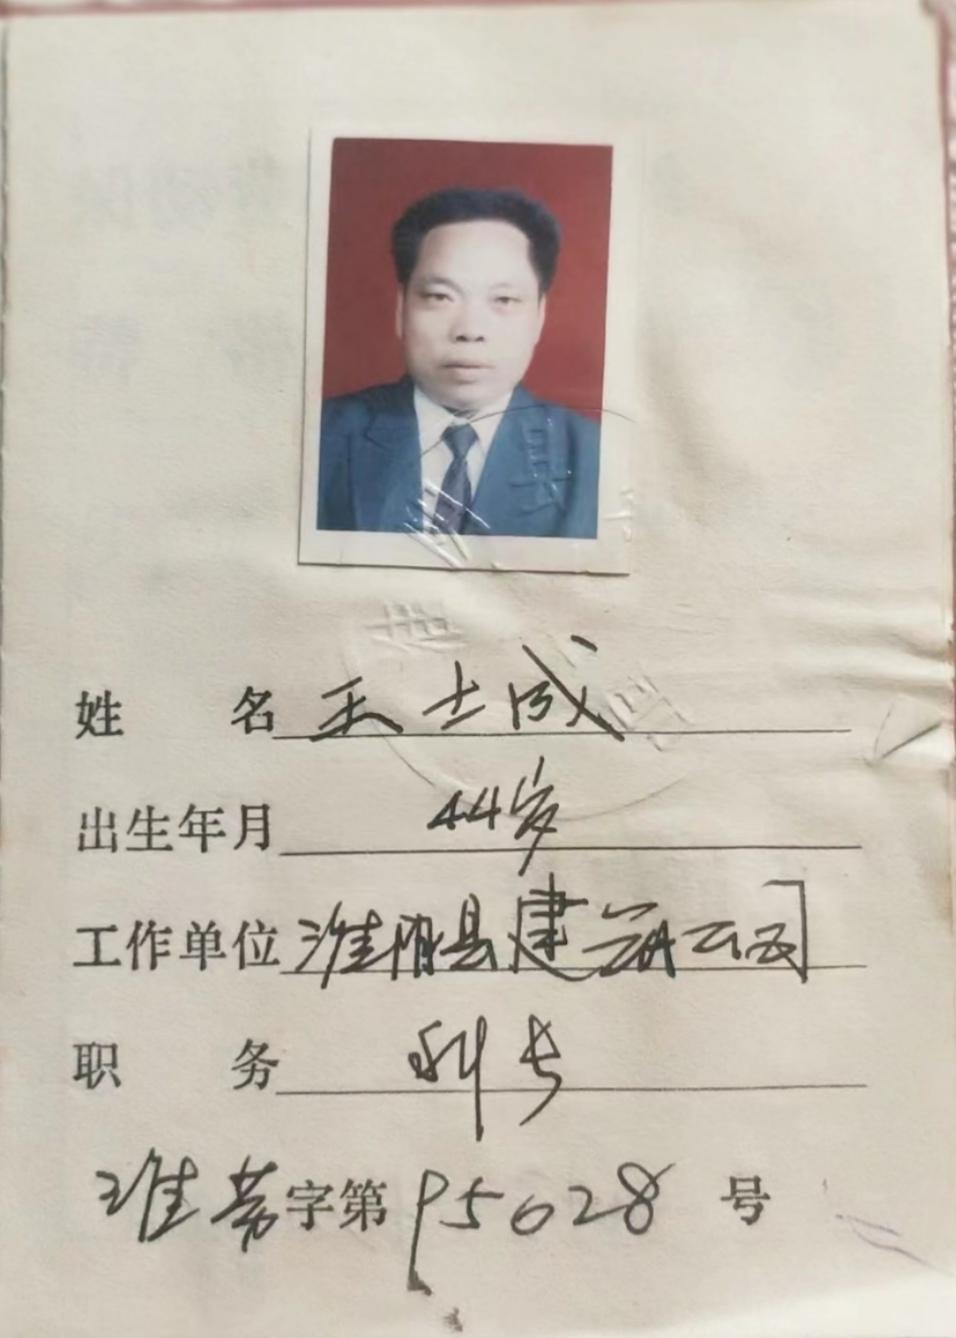 姓 名 王士成
出生年月 44岁
工作单位 淮阴县建筑公司
职 务 科长
淮劳字第95028号